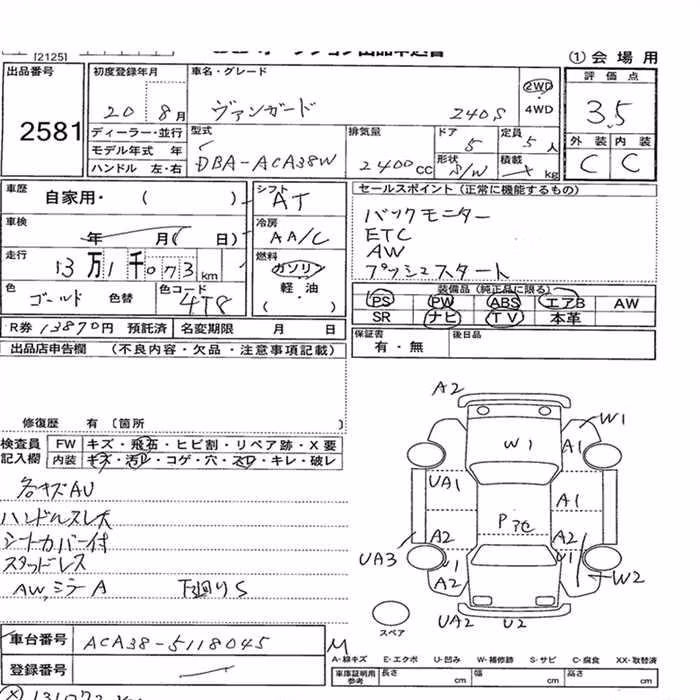 [2125]
①会場用
出品番号
2581
初度登録年月
20 8月
車名・グレード
ヴァンガード 240S
2WD
4WD
評価点
3.5
外装 内装
C C
ディーラー・並行
モデル年式 年
ハンドル 左・右
型式
DBA-ACA38W
排気量
2400cc
ドア
5
形状
S/W
定員
5人
積載
kg
車歴
自家用・( )
車検
年 月( 日)
走行
13万1千073km
色
ゴールド 色替
色コード
4T8
シフト
AT
冷房
AA/C
燃料
ガソリン
軽油
( )
セールスポイント(正常に機能するもの)
バックモニター
ETC
AW
プッシュスタート
装備品(純正品に限る)
PS PW ABS エアB AW
SR ナビ TV 本革
R券 13870円 預託済 名変期限 月 日
保証書
有・無
後日品
出品店申告欄 (不良内容・欠品・注意事項記載)
修復歴 有〔箇所 〕
検査員
記入欄
FW キズ・飛石・ヒビ割・リペア跡・X要
内装 キズ・汚レ・コゲ・穴・スレ・キレ・破レ
各キズAU
ハンドルスレ大
シートカバー付
スタッドレス
AW,ミラーA 下廻りS
A2
W1
W1 A1
UA1 A1
P色
A2 A2
UA3 U1 U1
A2 W2
UA2 U2
スペア
車台番号 ACA38-5118045
登録番号
M
A-線キズ E-エクボ U-凹み W-補修跡 S-サビ C-腐食 XX-取替済
車庫証明用参考 長さ cm 幅 cm 高さ cm